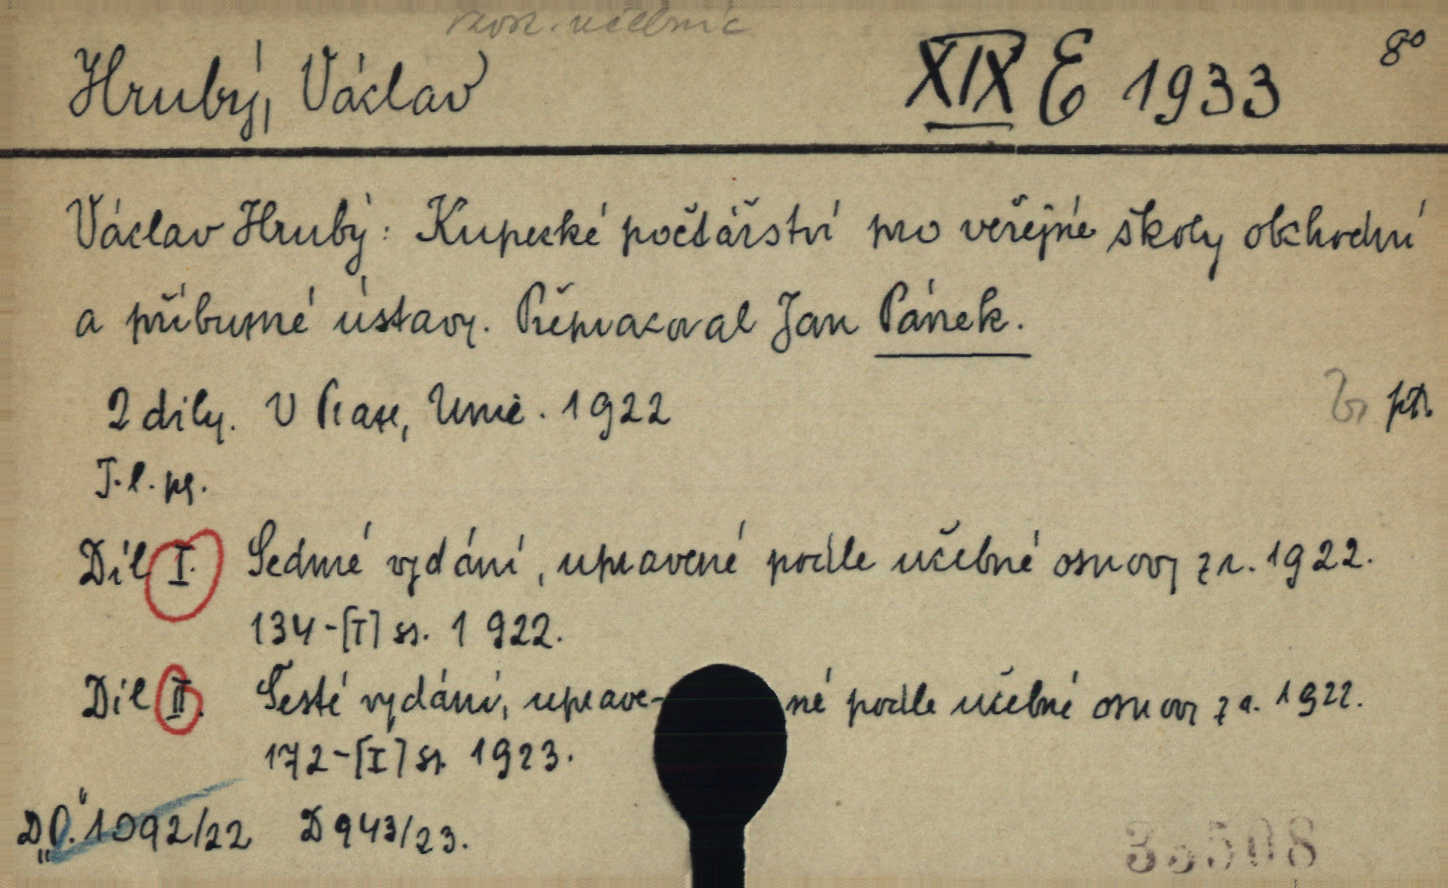 Hrubý, Václav
XIX E 1933
8°
Václav Hrubý: Kupecké počtářství pro veřejné školy obchodní
a příbuzné ústavy. Přepracoval Jan Pánek.
2 díly. V Praze, Unie. 1922
T. l. pg.
Díl I. Sedmé vydání, upravené podle učebné osnovy z r. 1922.
134-[I] st. 1922.
Díl II. Šesté vydání, uprave- né podle učebné osnovy z r. 1922.
172-[I] st. 1923.
D„O."1092/22 D 943/23.